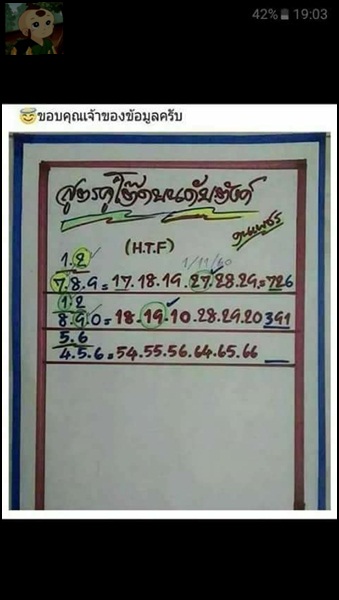 42% 19:03
😇ขอบคุณเจ้าของข้อมูลครับ
สูตรคู่โต๊ดบนดับฮังค์
คนเพชร
(H.T.F) 1/11/60
1.2
7.8.9 = 17.18.19.27.28.29. = 726
1.2
8.9.0 = 18.19.10.28.29.20 391
5.6
4.5.6 = 54.55.56.64.65.66